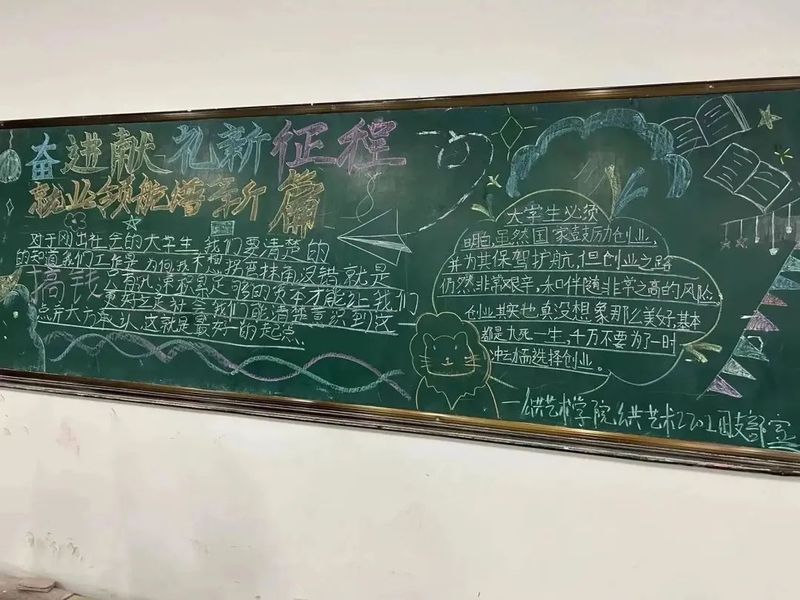 奋进献礼新征程
就业领航谱新篇
对于刚出社会的大学生,我们要清楚的
的知道我们工作是为何,我不想拐弯抹角没错就是
搞钱
只有先累积到足够的资本才能让我们
更好立足社会我们能清楚意识到这
点并大方承认,这就是最好的起点
大学生必须
明白,虽然国家鼓励创业,
并为其保驾护航,但创业之路
仍然非常艰辛,和伴随非常之高的风险
创业其实也真没想象那么美好,基本
都是九死一生,千万不要为了一时
冲动而选择创业。
艺术学院 艺术2202团支部宣